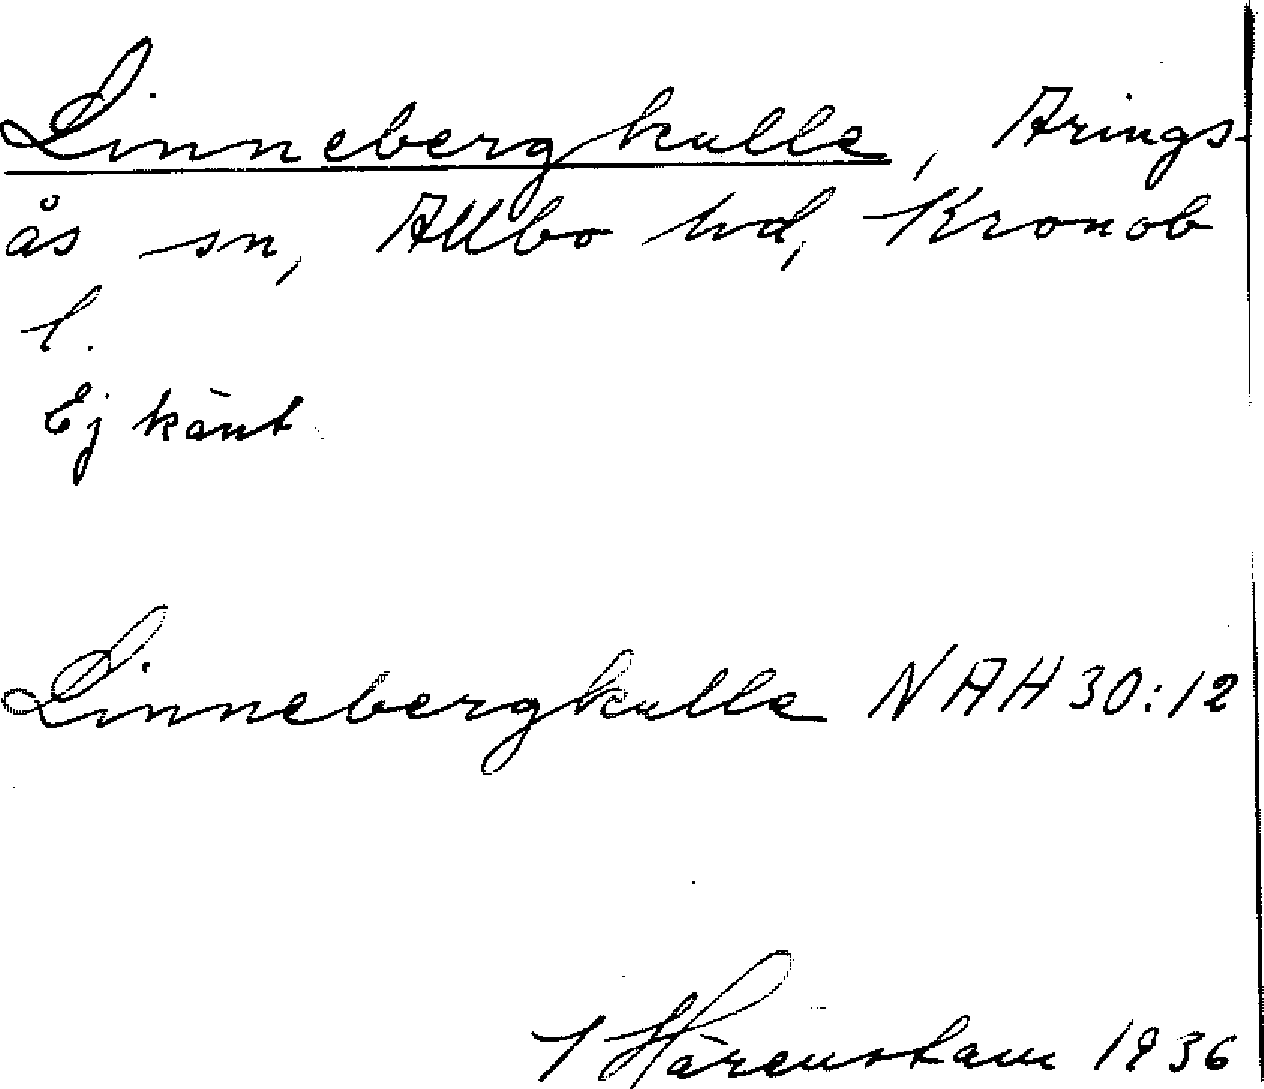 Linnebergkulle, Arings-
ås sn, Allbo hd, Kronob
l.
Ej känt
Linnebergkulle NAH 30:12
I Härenstam 1936